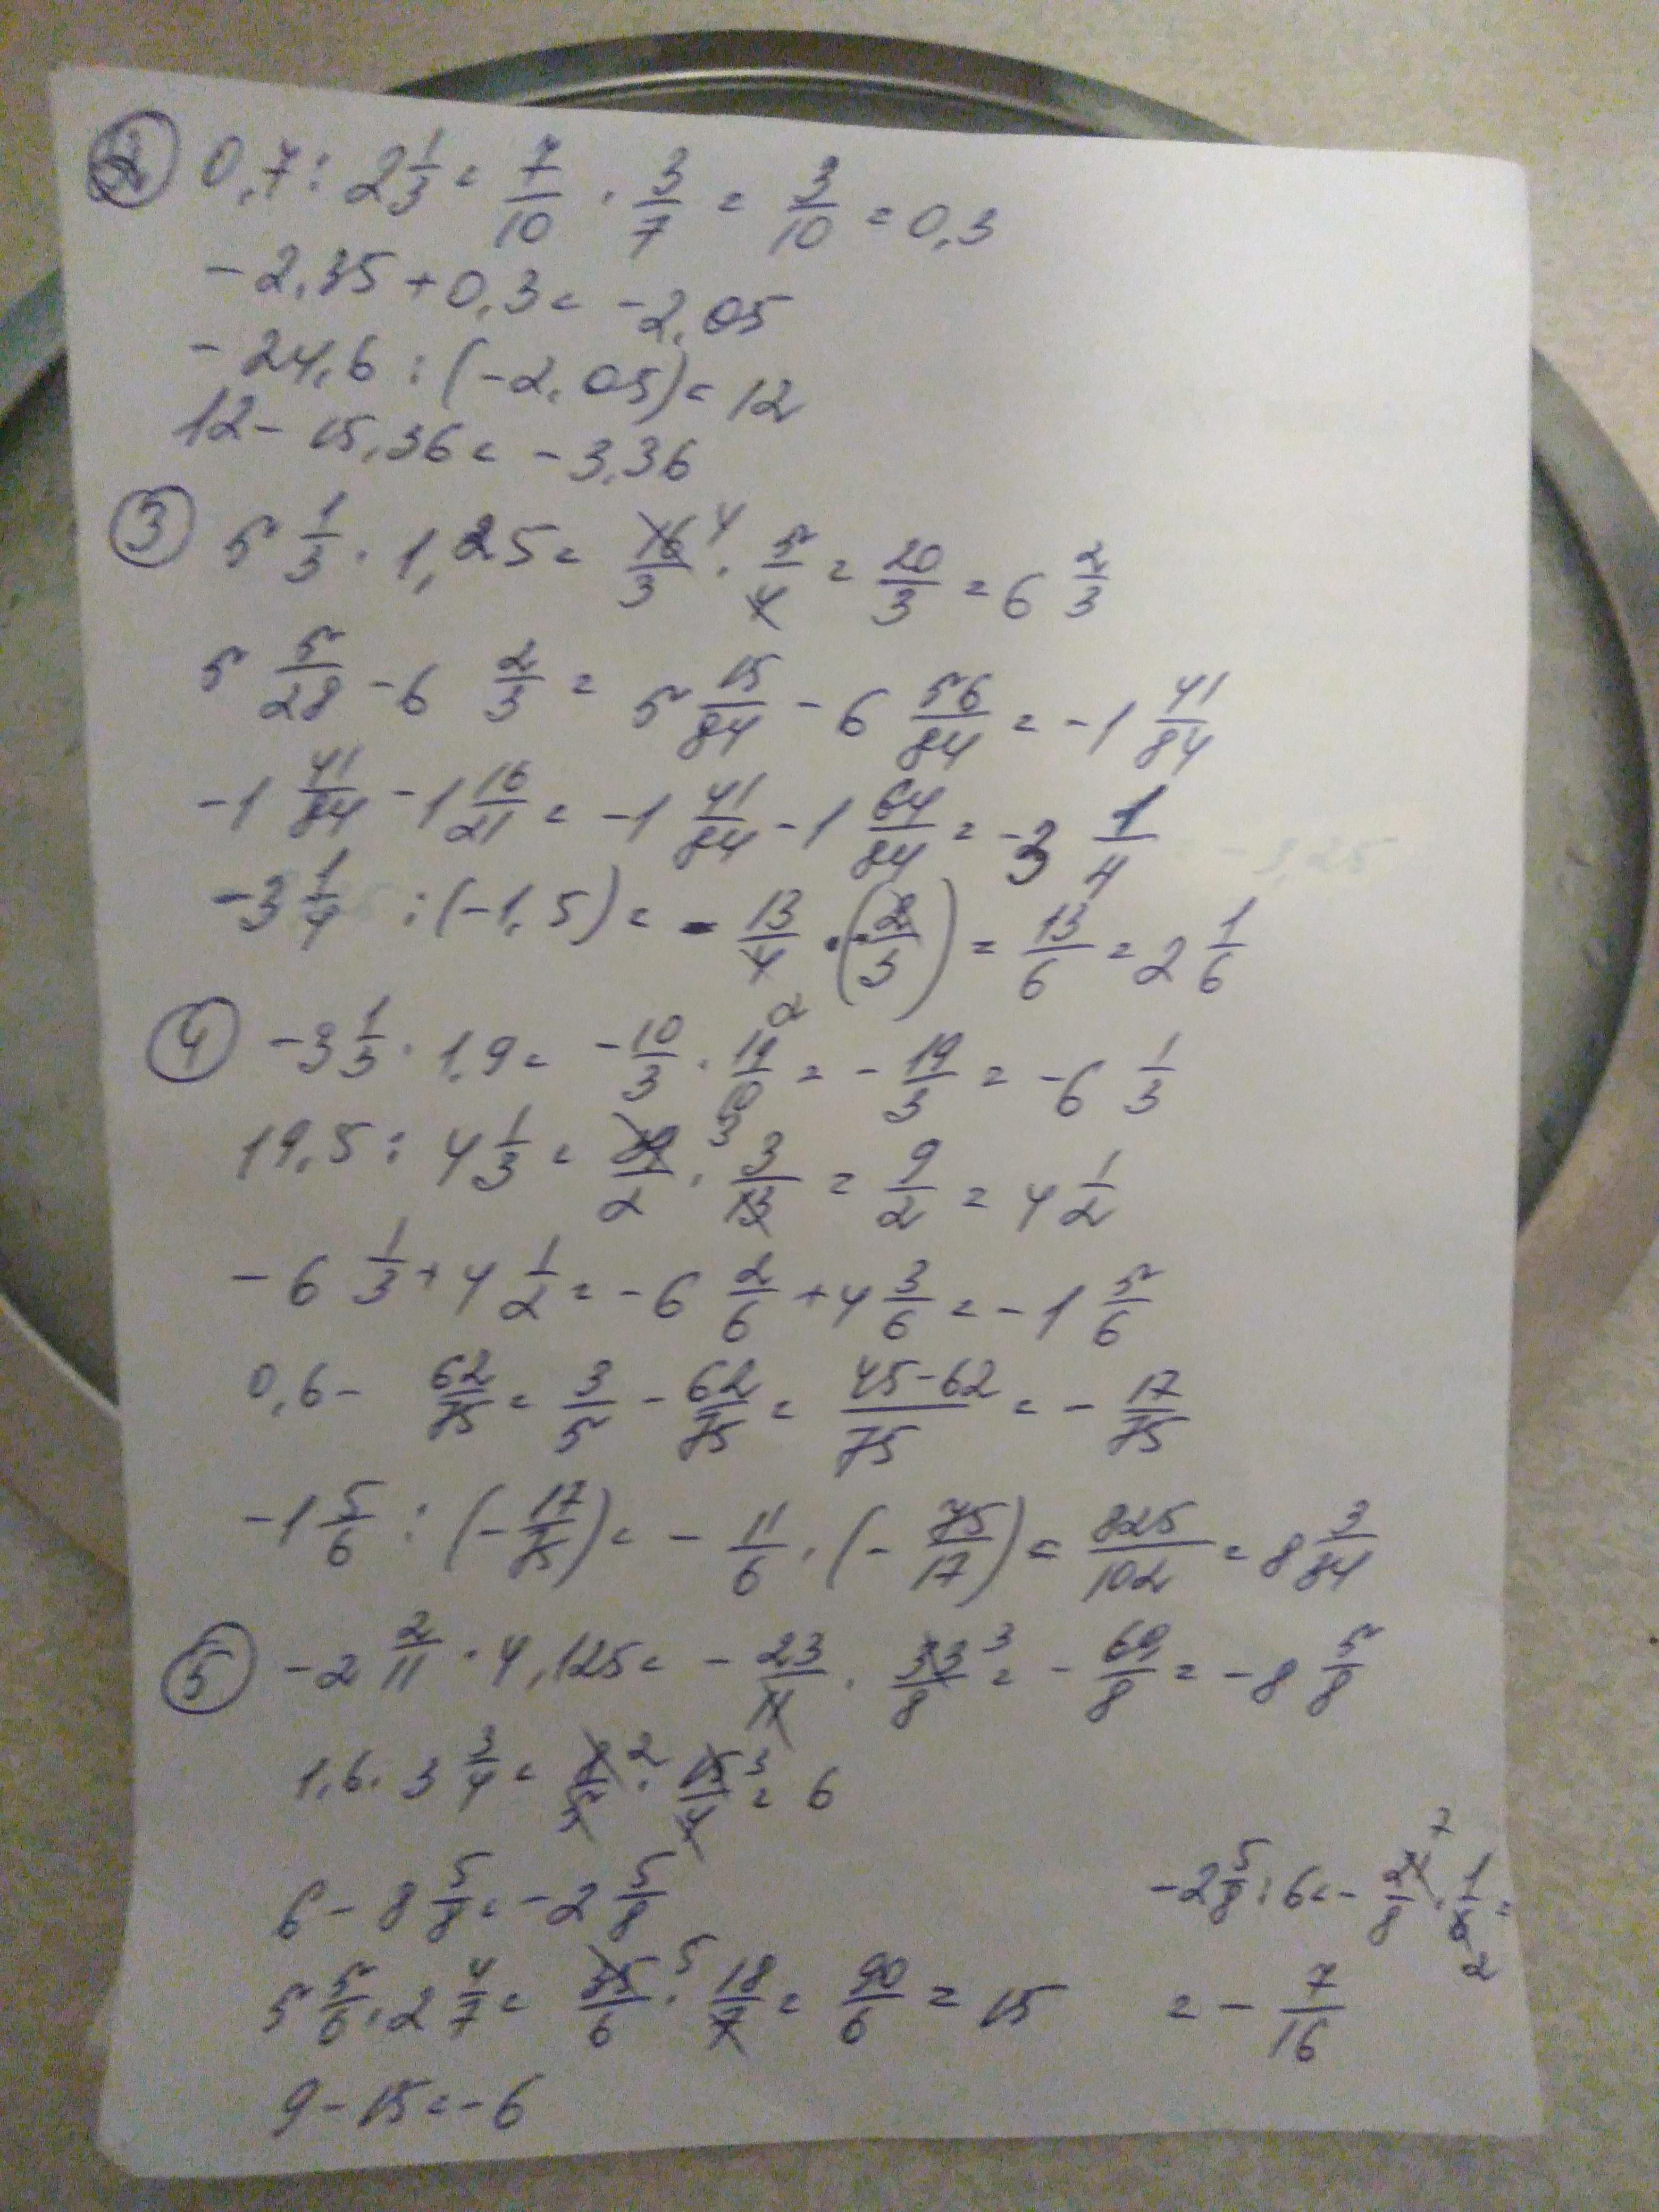 ② 0,7 : 2 1/3 = 7/10 · 3/7 = 3/10 = 0,3
-2,35 + 0,3 = -2,05
-24,6 : (-2,05) = 12
12 - 15,36 = -3,36
③ 5 1/3 · 1,25 = 16/3 4 · 5/4 = 20/3 = 6 2/3
5 5/28 - 6 2/3 = 5 15/84 - 6 56/84 = -1 41/84
-1 41/84 - 1 16/21 = -1 41/84 - 1 64/84 = -3 1/4 = -3,25
-3 1/4 : (-1,5) = - 13/4 · (-2/3) = 13/6 = 2 1/6
2
④ -3 1/3 · 1,9 = -10/3 · 19/10 = -19/3 = -6 1/3
19,5 : 4 1/3 = 39/2 3 · 3/13 = 9/2 = 4 1/2
-6 1/3 + 4 1/2 = -6 2/6 + 4 3/6 = -1 5/6
0,6 - 62/75 = 3/5 - 62/75 = 45-62/75 = - 17/75
-1 5/6 : (-17/75) = - 11/6 · (- 75/17) = 825/102 = 8 3/34
⑤ -2 2/11 · 4,125 = - 23/11 · 33/8 3 = - 69/8 = -8 5/8
1,6 · 3 3/4 = 8/5 2 · 15/4 3 = 6
6 - 8 5/8 = -2 5/8
-2 5/8 : 6 = - 21/8 7 · 1/6 2 =
5 5/6 · 2 4/7 = 35/6 5 · 18/7 = 90/6 = 15
= - 7/16
9 - 15 = -6